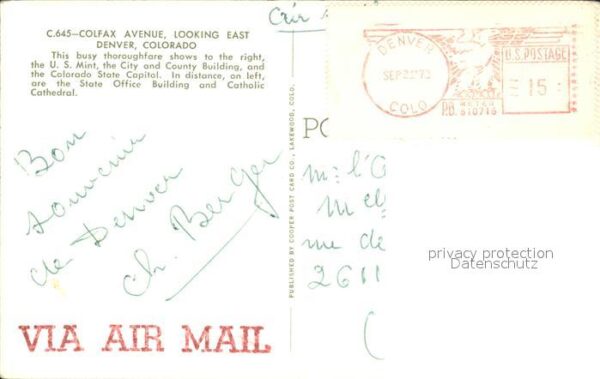 C.645—COLFAX AVENUE, LOOKING EAST
DENVER, COLORADO
This busy thoroughfare shows to the right,
the U. S. Mint, the City and County Building, and
the Colorado State Capitol. In distance, on left,
are the State Office Building and Catholic
Cathedral.
Bon
souvenir
de Denver
Ch. Berger
VIA AIR MAIL
PUBLISHED BY COOPER POST CARD CO., LAKEWOOD, COLO.
DENVER
COLO
U.S. POSTAGE
15
P.B. METER
PO
me de
privacy protection
Datenschutz